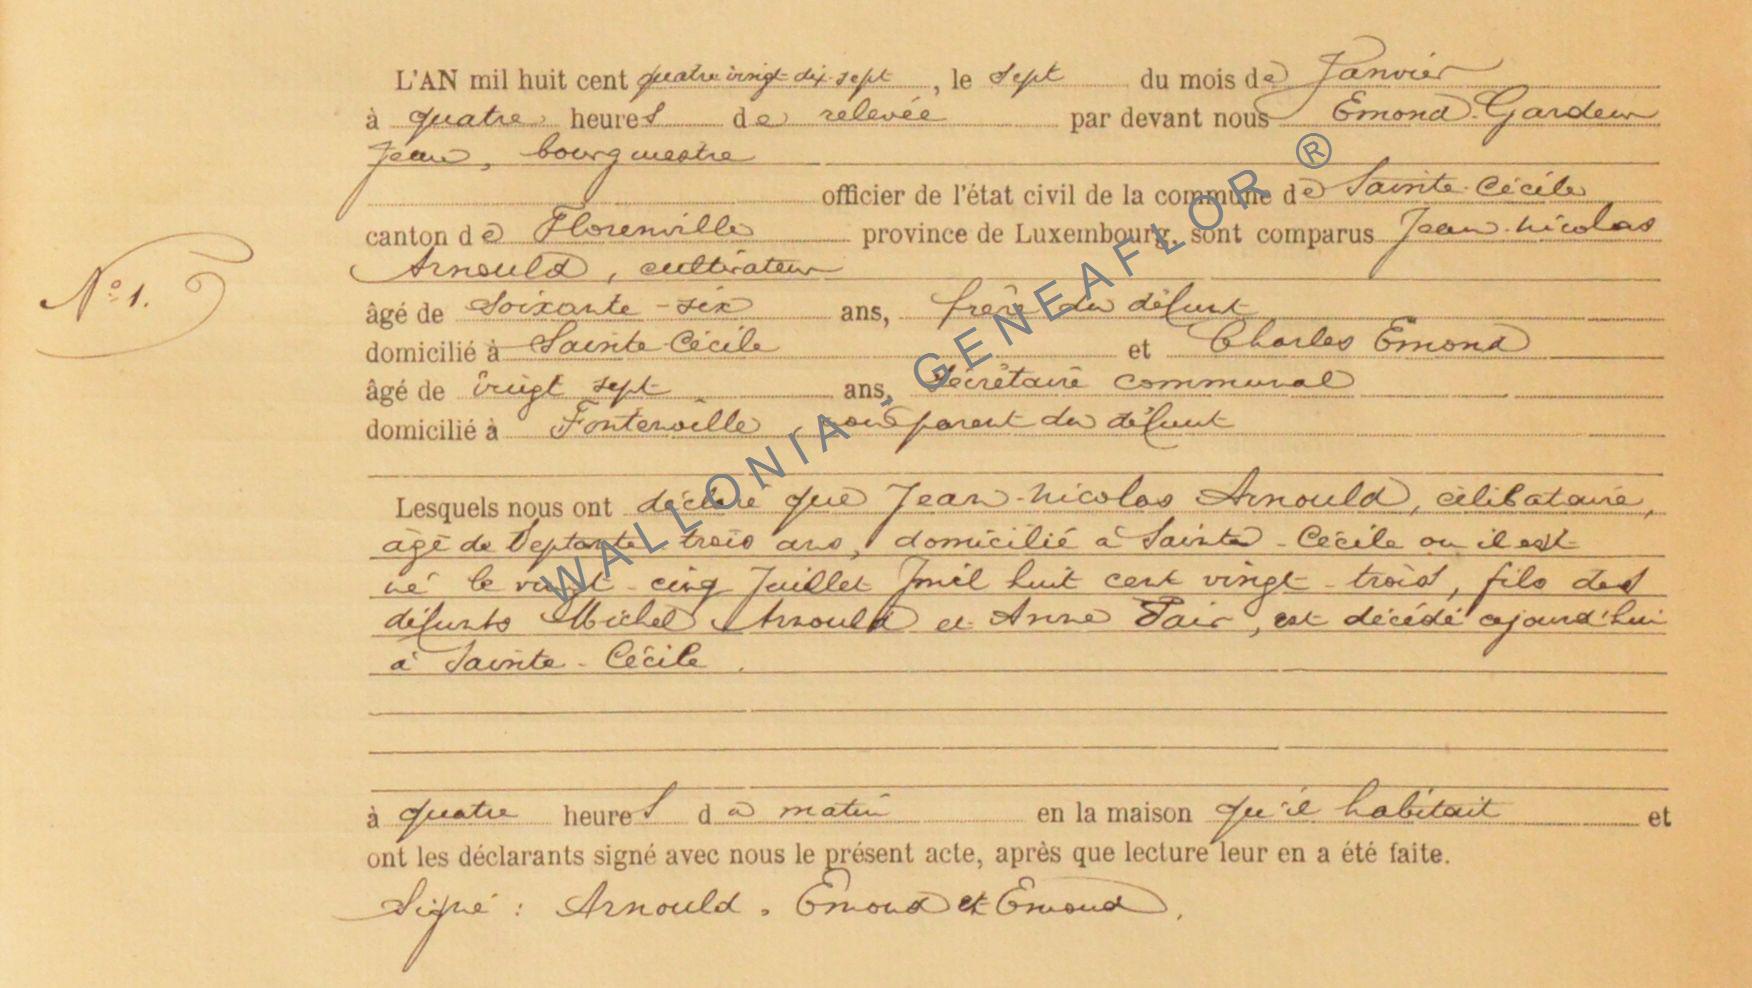 L'AN mil huit cent quatre vingt-dix-sept, le sept du mois de Janvier
à quatre heures de relevée par devant nous Emond-Gardeur
Jean, bourgmestre
officier de l'état civil de la commune de Sainte-Cécile
canton de Florenville province de Luxembourg, sont comparus Jean-Nicolas
Arnould, cultivateur
N° 1.
âgé de soixante-six ans, frère du défunt
domicilié à Sainte-Cécile et Charles Emond
âgé de vingt sept ans, secrétaire communal
domicilié à Fontenoille, parent du défunt
Lesquels nous ont déclaré que Jean-Nicolas Arnould, célibataire,
âgé de septante-trois ans, domicilié à Sainte-Cécile ou il est
né le vingt-cinq Juillet mil huit cent vingt-trois, fils des
défunts Michel Arnould et Anne Pair, est décédé ajourd'hui
à Sainte-Cécile.
à quatre heures du matin en la maison qu'il habitait et
ont les déclarants signé avec nous le présent acte, après que lecture leur en a été faite.
Signé : Arnould. Emond et Emond.
WALLONIA - GENEAFLOR ®